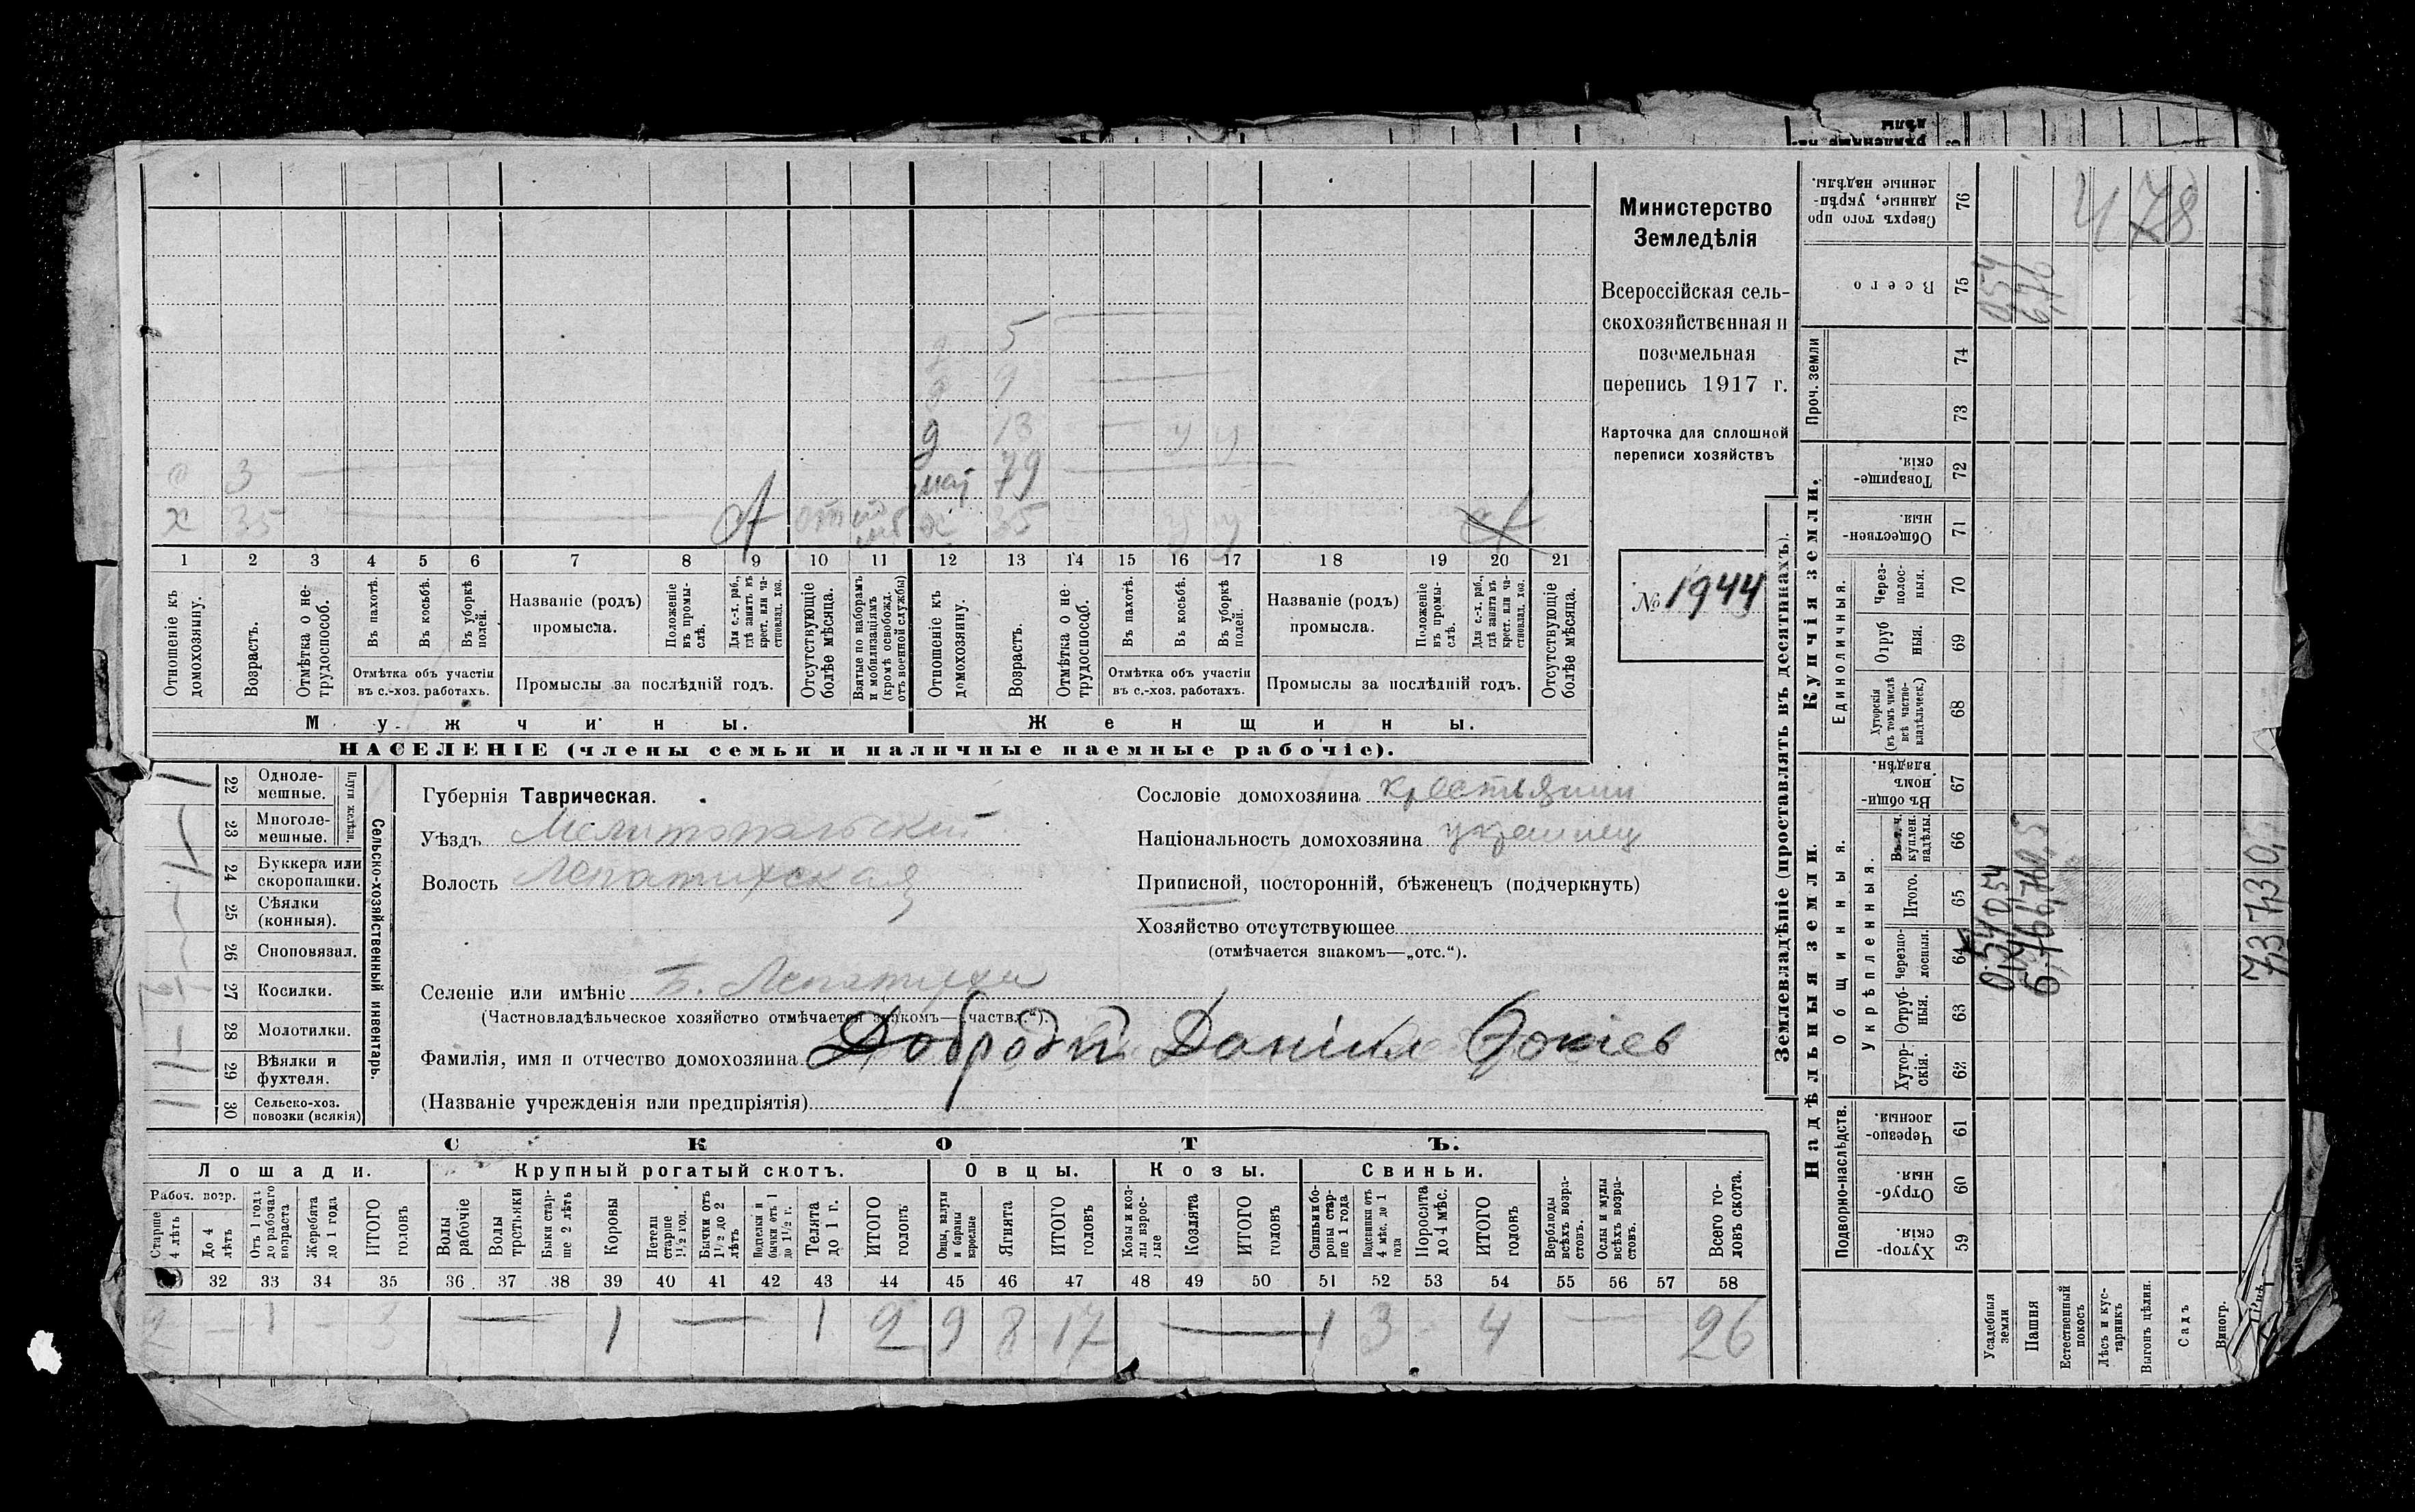 Министерство
Земледѣлія
Всероссійская сель-
скохозяйственная и
поземельная
перепись 1917 г.
Карточка для сплошной
переписи хозяйствъ
№ 1944
д 5
д 9
д 13 — у у
3 мат 79
х 35 х 35 у у
1 2 3 4 5 6 7 8 9 10 11 12 13 14 15 16 17 18 19 20 21
Отношеніе къ домохозяину.
Возрастъ.
Отмѣтка о не-трудоспособ.
Въ пахотѣ.
Въ косьбѣ.
Въ уборкѣ полей.
Отмѣтка объ участіи
въ с.-хоз. работахъ.
Названіе (родъ)
промысла.
Положеніе въ промы-слѣ.
Для с.-х. раб., гдѣ занятъ въ крест. или ча-стновлад. хоз.
Промыслы за послѣдній годъ.
Отсутствующіе болѣе мѣсяца.
Взятые по наборамъ и мобилизаціямъ (кромѣ освобожд. отъ военной службы)
Отношеніе къ домохозяину.
Возрастъ.
Отмѣтка о не-трудоспособ.
Въ пахотѣ.
Въ косьбѣ.
Въ уборкѣ полей.
Отмѣтка объ участіи
въ с.-хоз. работахъ.
Названіе (родъ)
промысла.
Положеніе въ промы-слѣ.
Для с.-х. раб., гдѣ занята въ крест. или ча-стновлад. хоз.
Промыслы за послѣдній годъ.
Отсутствующіе болѣе мѣсяца.
Мужчины. Женщины.
НАСЕЛЕНІЕ (члены семьи и наличные наемные рабочіе).
22 Одноле-мешные.
23 Многоле-мешные.
24 Буккера или скоропашки.
25 Сѣялки (конныя).
26 Сноповязал.
27 Косилки.
28 Молотилки.
29 Вѣялки и фухтеля.
30 Сельско-хоз. повозки (всякія)
Плуги желѣзн.
Сельско-хозяйственный инвентарь.
Губернія Таврическая.
Уѣздъ Мелитопольский
Волость Лепатихская
Селеніе или имѣніе Б. Лепатиха
(Частновладѣльческое хозяйство отмѣчается знакомъ—„частвл.“).
Фамилія, имя и отчество домохозяина Доброди Даніил
(Названіе учрежденія или предпріятія)
Сословіе домохозяина крестьянин
Національность домохозяина украинец
Приписной, посторонній, бѣженецъ (подчеркнуть)
Хозяйство отсутствующее
(отмѣчается знакомъ—„отс.“).
СКОТЪ.
Лошади. Крупный рогатый скотъ. Овцы. Козы. Свиньи.
Рабоч. возр.
Старше 4 лѣтъ
До 4 лѣтъ
Отъ 1 года до рабочаго возраста
Жеребята до 1 года
ИТОГО головъ
Волы рабочіе
Волы третьяки
Быки стар-ше 2 лѣтъ
Коровы
Нетели старше 1½ год.
Бычки отъ 1½ до 2 лѣтъ
Подтелки и бычки отъ 1 до 1½ г.
Телята до 1 г.
ИТОГО головъ
Овцы, валухи и бараны взрослые
Ягнята
ИТОГО головъ
Козы и коз-лы взрос-лые
Козлята
ИТОГО головъ
Свиньи и бо-ровы стар-ше 1 года
Подсвинки отъ 4 мѣс. до 1 года
Поросята до 4 мѣс.
ИТОГО головъ
Верблюды всѣхъ возра-стовъ.
Ослы и мулы всѣхъ возра-стовъ.
Всего го-ловъ скота.
32 33 34 35 36 37 38 39 40 41 42 43 44 45 46 47 48 49 50 51 52 53 54 55 56 57 58
2 — 1 — 3 — 1 — 1 2 9 8 17 — 1 3 4 — 26
Землевладѣніе (проставлять въ десятинахъ).
Купчія земли.
Надѣльныя земли.
Сверхъ того про-данные, укрѣп-ленные надѣлы. 76
Всего 75
Проч. земли 74 73
Товарище-скія. 72
Обществен-ныя. 71
Единоличныя.
Через-полос-ныя. 70
Отруб-ныя. 69
Хуторскія (въ томъ числѣ всѣ частно-владѣльческ.) 68
Общинныя.
Въ общин-номъ владѣн. 67
Укрѣпленныя.
Въ т. ч. куплен. надѣлы. 66
Итого. 65
Черезпо-лосныя. 64
Отруб-ныя. 63
Хутор-скія. 62
Подворно-наслѣдств.
Черезпо-лосныя. 61
Отруб-ныя. 60
Хутор-скія. 59
Усадебныя земли
Пашня
Естественный покосъ
Лѣсъ и кус-тарникъ
Выгонъ цѣлин.
Садъ
Виногр.
478
0,54
6,76
0,54 0,54